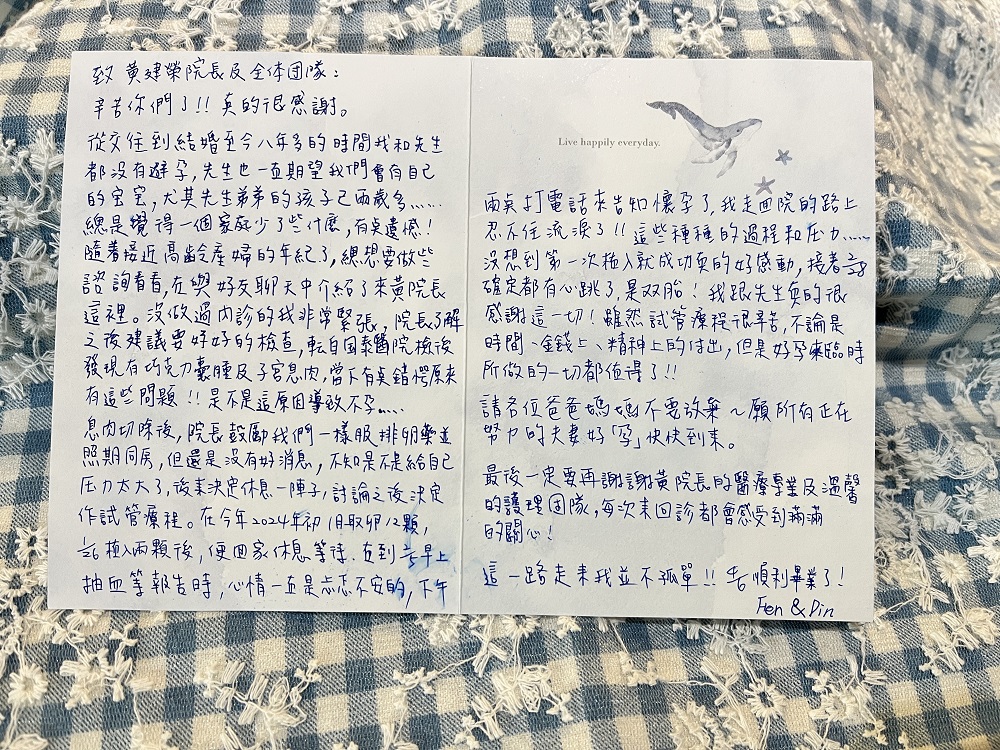 致 黃建榮院長及全体团隊：
辛苦你們了!! 真的很感謝。
從交往到結婚至今八年多的時間我和先生
都沒有避孕,先生也一直期望我們會有自己
的宝宝,尤其先生弟弟的孩子已兩歲多......
總是覺得一個家庭少了些什麼,有桌遺憾!
隨着接近高齡產婦的年紀了,總想要做些
諮詢看看,在與好友聊天中介紹了來黃院長
這裡。沒做過內診的我非常緊張,院長了解
之後建議要好好的檢查,転自国泰醫院檢後
發現有巧克力囊腫及子宮息肉,當下有桌錯愕原來
有這些問題!!是不是這原因導致不孕.....
息肉切除後,院長鼓勵我們一樣服排卵藥並
照期同房,但還是沒有好消息,不知是不是給自己
压力太大了,後來決定休息一陣子,討論之後決定
作試管療程。在今年2024年初1月取卵12顆,
植入兩顆後,便回家休息等待.在到早上
抽血等報告時,心情一直是忐忑不安的,下午
Live happily everyday.
兩桌打電話來告知懷孕了,我走回院的路上
忍不住流淚了!!這些種種的過程和压力.....
沒想到第一次植入就成功真的好感動,接着
確定都有心跳了,是双胎!我跟先生真的很
感謝這一切!雖然試管療程很辛苦,不論是
時間、金錢上、精神上的付出,但是好孕來臨時
所做的一切都值得了!!
請各位爸爸媽媽不要放棄~願所有正在
努力的夫妻好「孕」快快到來。
最後一定要再謝謝黃院長的醫療專業及溫馨
的護理团隊,每次來回診都會感受到滿滿
的關心!
這一路走來我並不孤單!!去順利畢業了!
Fen & Pin